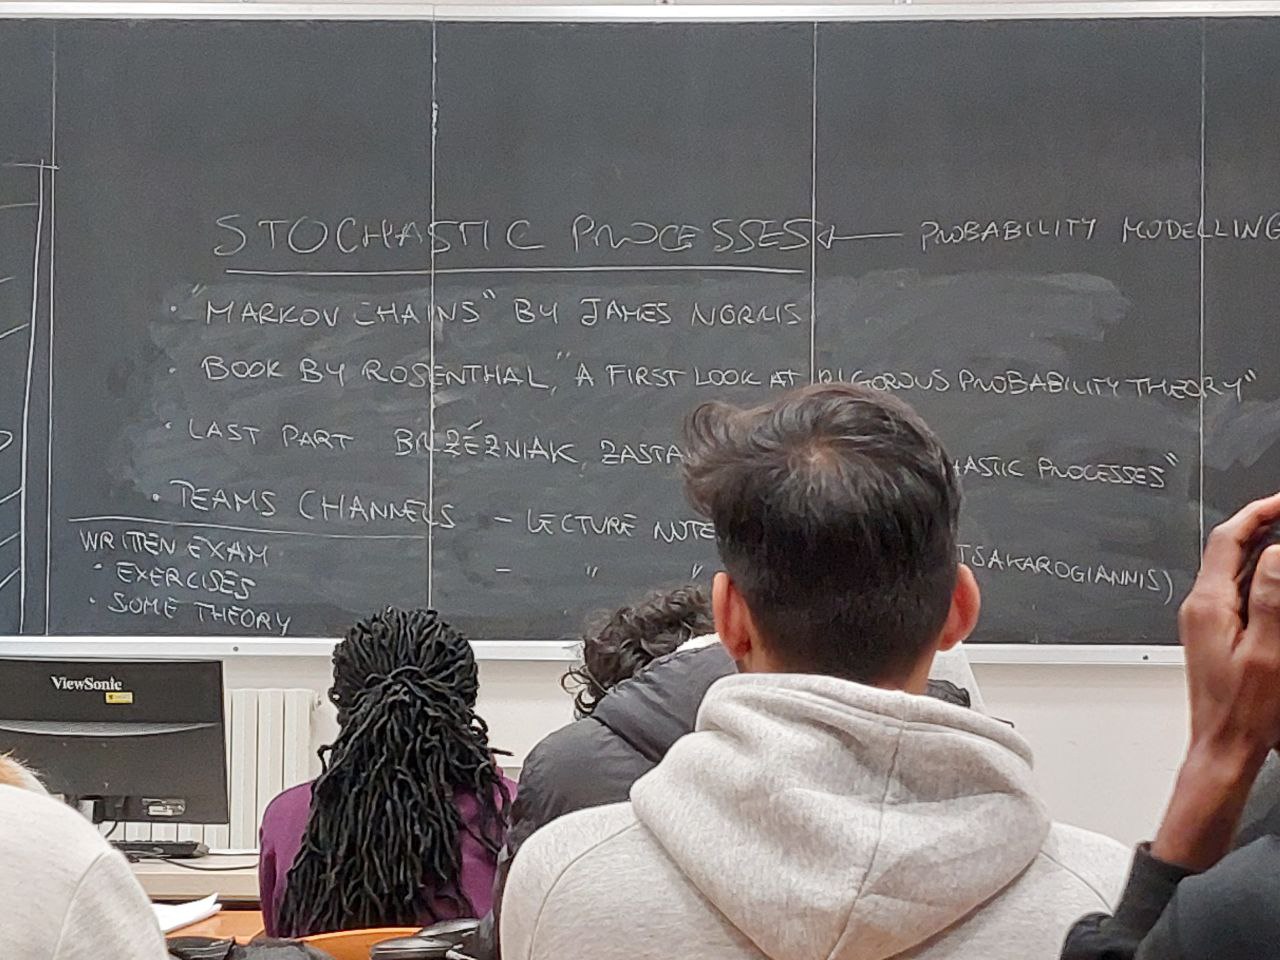 STOCHASTIC PROCESSES ← PROBABILITY MODELLING
• "MARKOV CHAINS" BY JAMES NORRIS
• BOOK BY ROSENTHAL, "A FIRST LOOK AT RIGOROUS PROBABILITY THEORY"
• LAST PART BRZÉZNIAK, ZASTA HASTIC PROCESSES"
• TEAMS CHANNELS - LECTURE NOTE
- " " TSAKAROGIANNIS)
WRITTEN EXAM
• EXERCISES
• SOME THEORY
ViewSonic